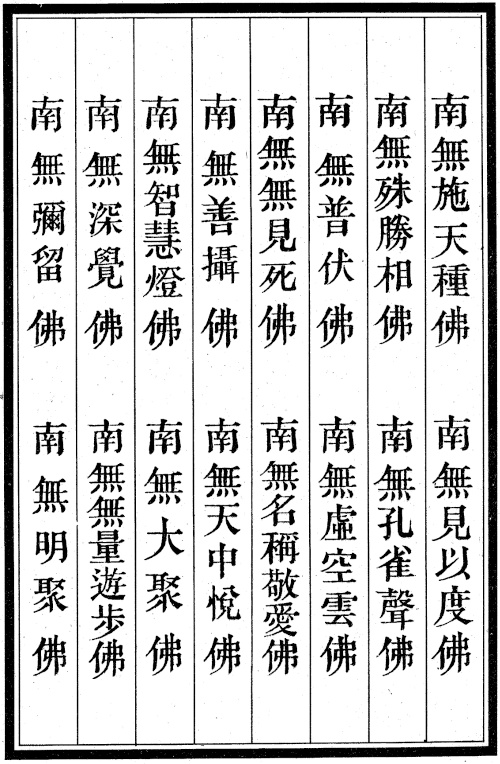 南無施天種佛　南無見以度佛
南無殊勝相佛　南無孔雀聲佛
南無普伏佛　南無虛空雲佛
南無無見死佛　南無名稱敬愛佛
南無善攝佛　南無天中悅佛
南無智慧燈佛　南無大聚佛
南無深覺佛　南無無量遊步佛
南無彌留佛　南無明聚佛